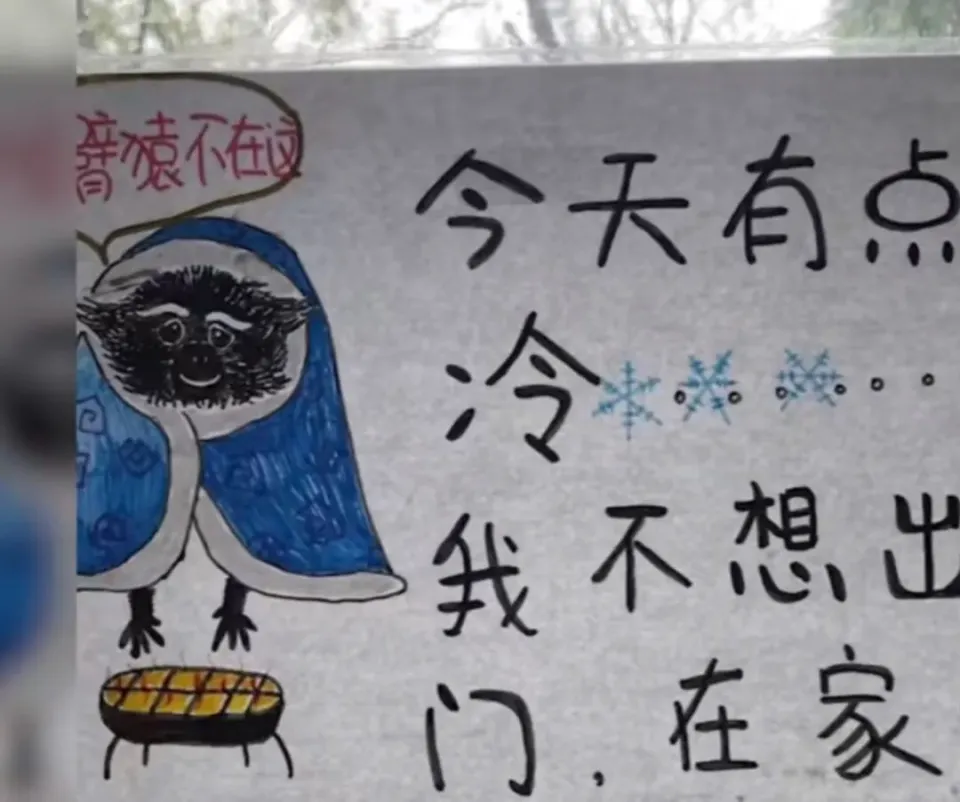 臂猿不在这
今天有点
冷......
我不想出
门,在家